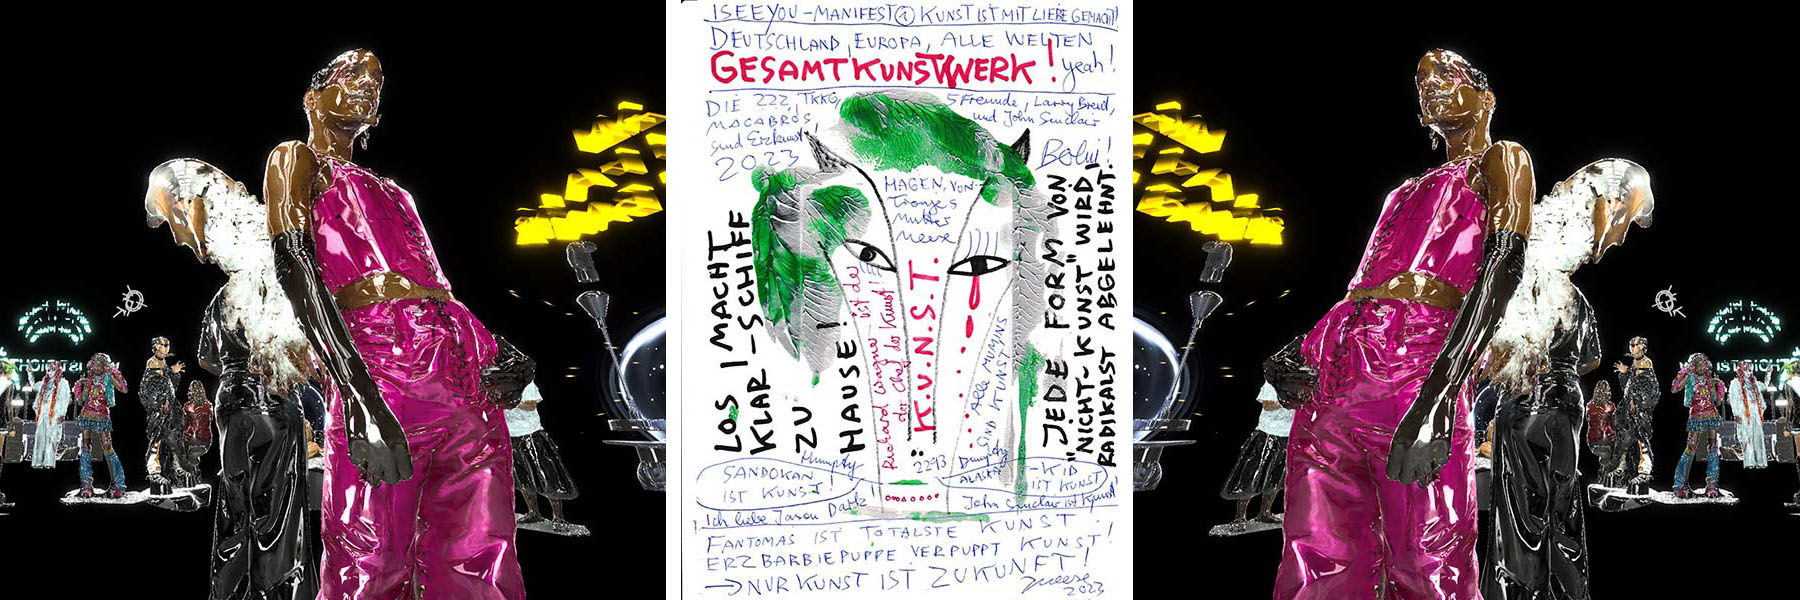 ISEEYOU-MANIFEST @ KUNST IST MIT LIEBE GEMACHT!
DEUTSCHLAND, EUROPA, ALLE WELTEN
GESAMTKUNSTWERK! yeah!
DIE 222, TKKG,
MACABROS,
sind Erzkunst,
2023
5 Freunde, Larry Brent,
und John Sinclair
MAGEN, VON
Tronjes
Mutter
Meese
LOS! MACHT
KLAR-SCHIFF
ZU
HAUSE!
Richard Wagner ist der
der Chef der Kunst!
: K.U.N.S.T.
2293
Alle MUMINS
SIND KUNST
"JEDE FORM VON
"NICHT-KUNST" WIRD
RADIKALST ABGELEHNT.
Humpty
Dumpty
SANDOKAN
IST KUNST!
ALASKA
-KID
IST KUNST
Ich liebe Jason Dark!
John Sinclair ist Kunst!
FANTOMAS IST TOTALSTE KUNST!
ERZBARBIEPUPPE VERPUPPT KUNST!
→NUR KUNST IST ZUKUNFT!
JMeese
2023
IST NICHT